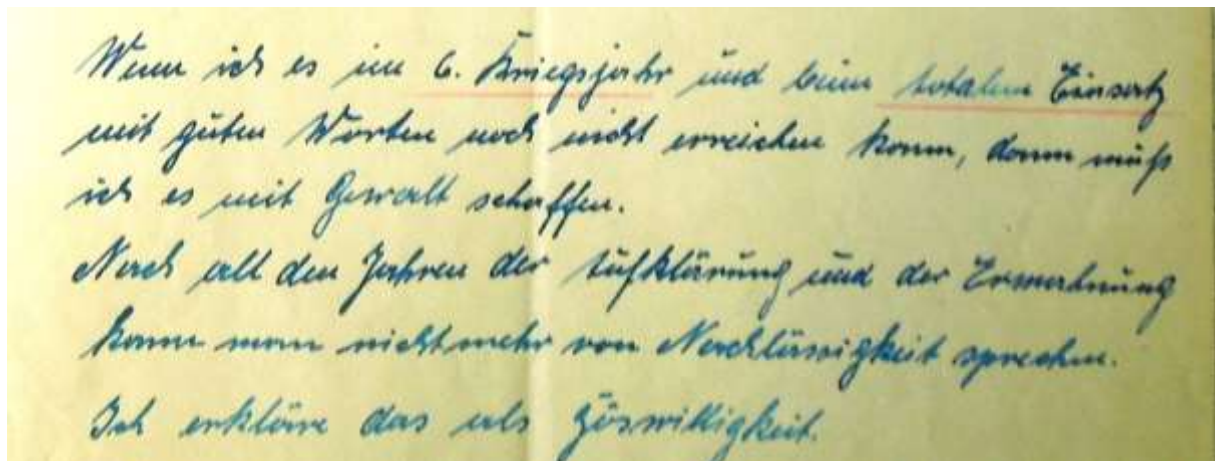 Wenn ich es im 6. Kriegsjahr und beim totalen Einsatz
mit guten Worten noch nicht erreichen kann, dann muß
ich es mit Gewalt schaffen.
Nach all den Jahren der Aufklärung und der Ermahnung
kann man nicht mehr von Nachlässigkeit sprechen.
Ich erkläre das als Böswilligkeit.